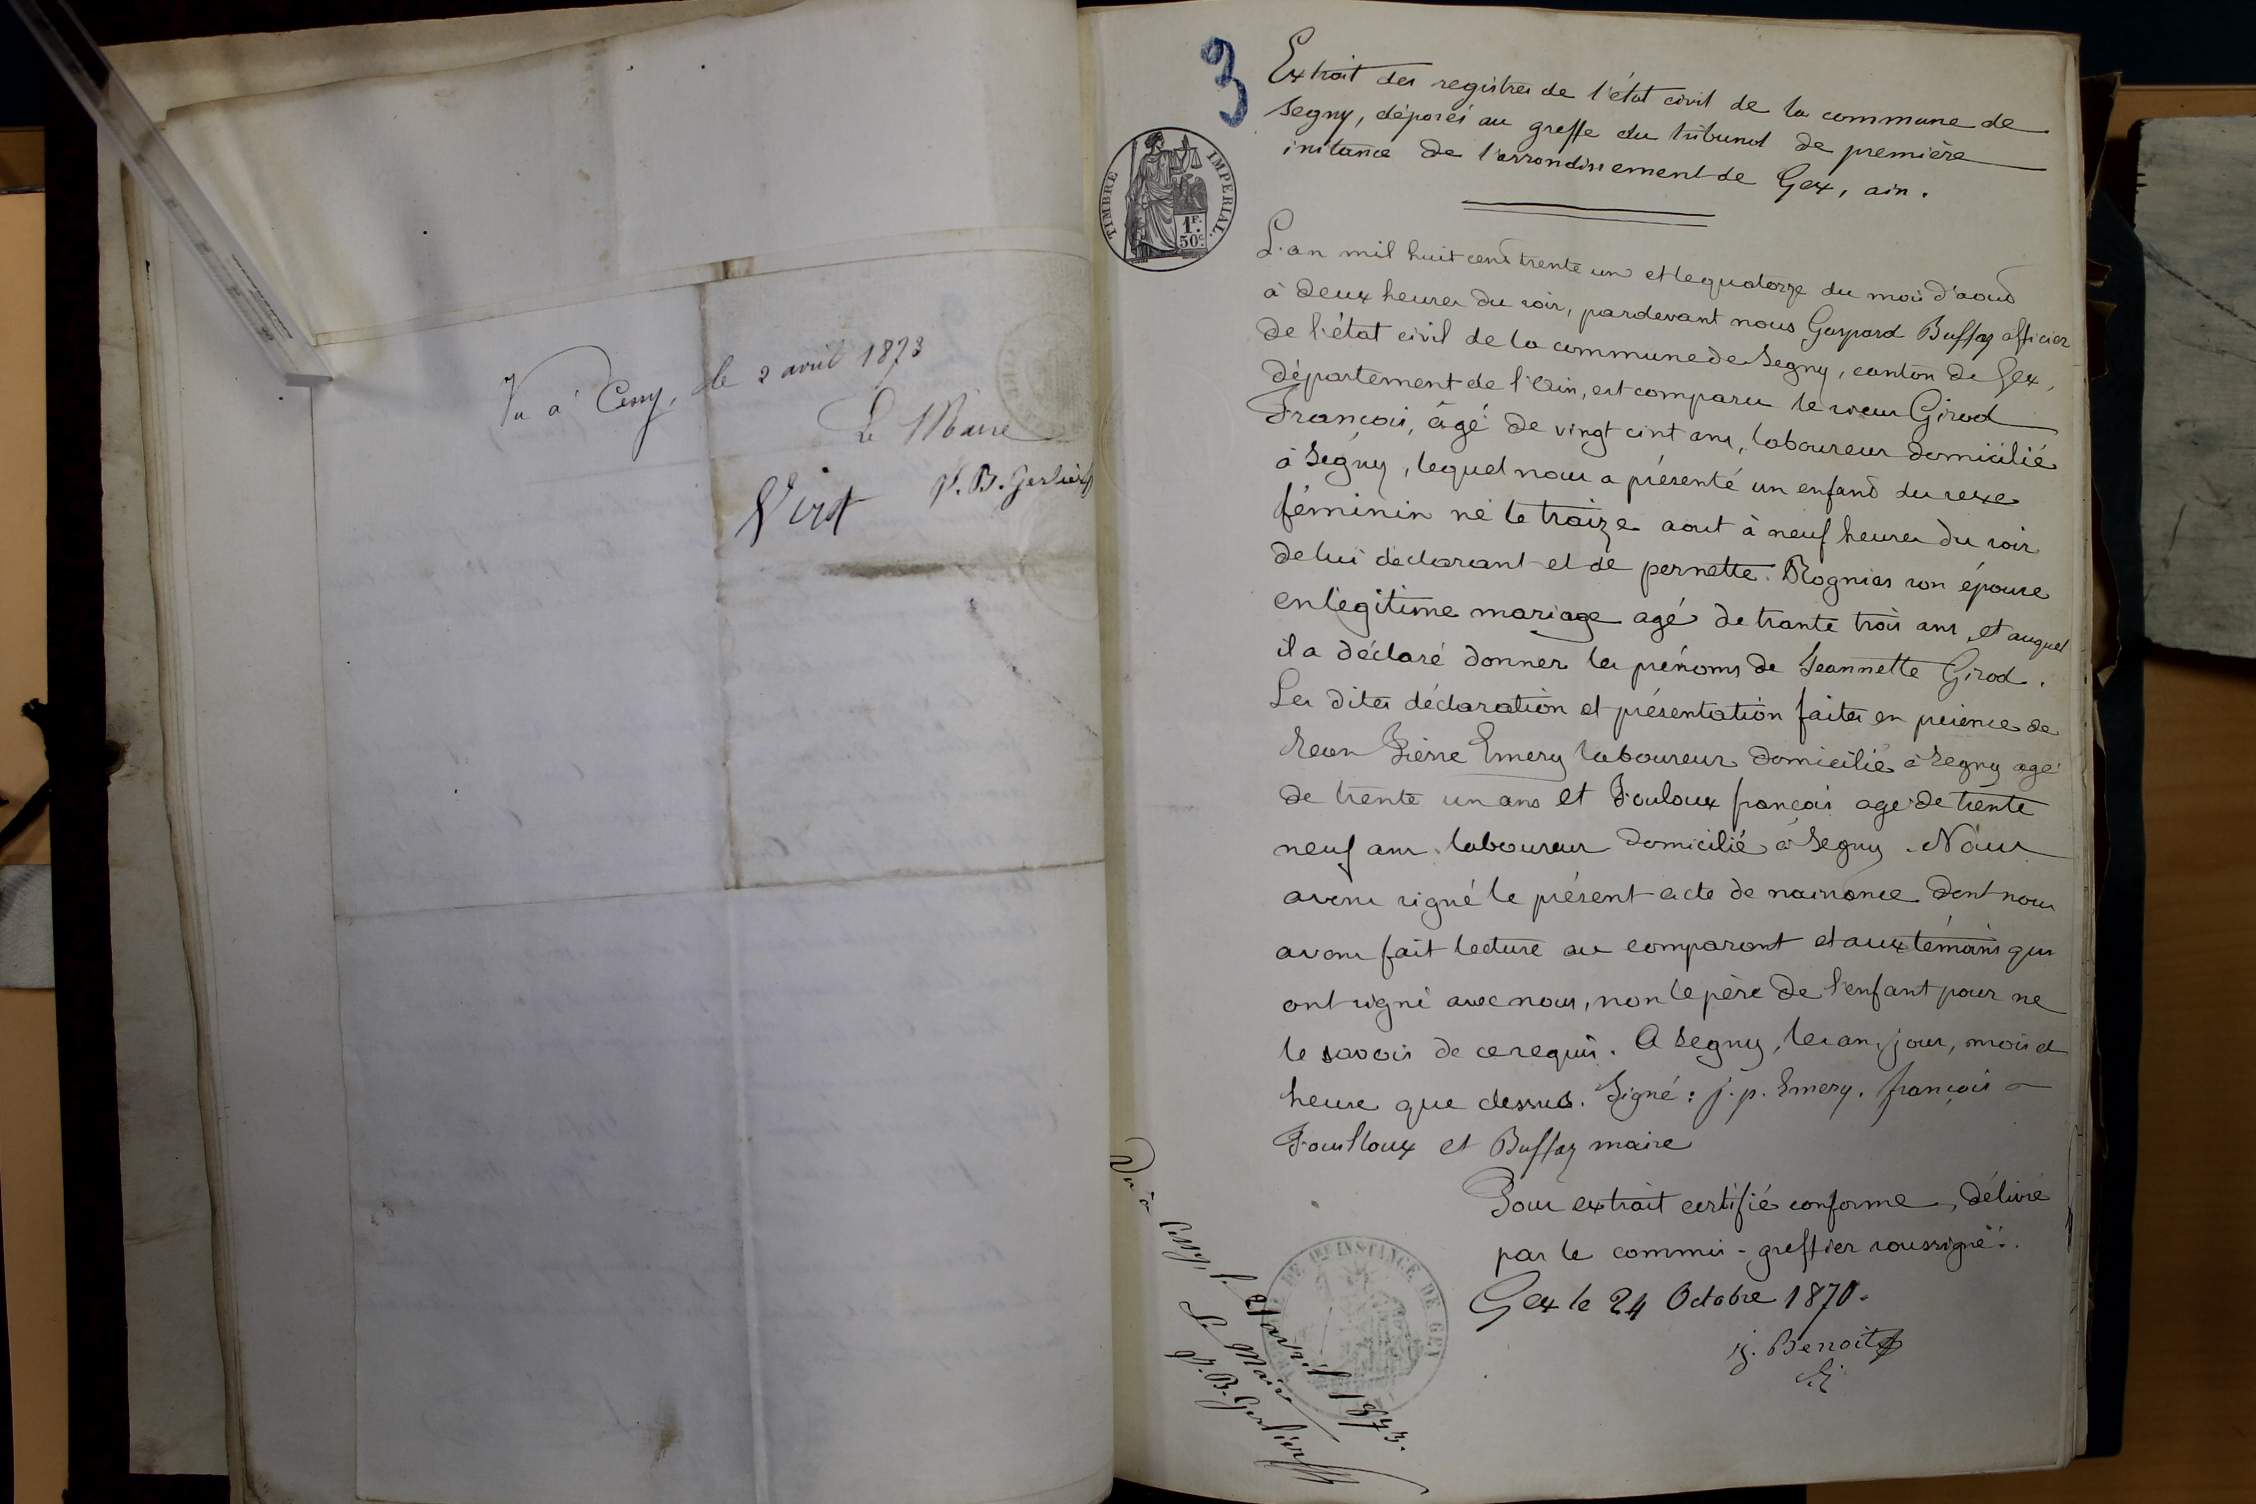 Vu à Cessy, le 2 avril 1873
Le Maire
J. B. Gerlier
3
TIMBRE IMPERIAL.
1F.
50c.
Extrait des registres de l'état civil de la commune de
Segny, déposés au greffe du tribunal de première
instance de l'arrondissement de Gex, ain.
L'an mil huit cent trente un et le quatorze du mois d'aout
à deux heures du soir, pardevant nous Gaspard Buffaz officier
de l'état civil de la commune de Segny, canton de Gex,
département de l'Ain, est comparu le sieur Girod
François, âgé de vingt cint ans, laboureur domicilié
à Segny, lequel nous a présenté un enfant du sexe
féminin né le traize aout à neuf heures du soir
de lui déclarant et de pernette Rognias son épouse
en légitime mariage agé de trante trois ans, et auquel
il a déclaré donner les prénoms de Jeannette Girod.
Les dites déclaration et présentation faites en présence de
Jean Pierre Emery laboureur domicilié à Segny agé
de trente un ans et Fouloux françois agé de trente
neuf ans laboureur domicilié à Segny. Nous
avons signé le présent acte de naissance dont nous
avons fait lecture au comparant et aux témoins qui
ont signé avec nous, non le père de l'enfant pour ne
le savoir de ce requis. A Segny, les an, jour, mois et
heure que dessus. Signé : j. p. Emery. françois
Foulloux et Buffaz maire
Pour extrait certifié conforme, délivré
par le commis-greffier soussigné.
Gex le 24 Octobre 1870.
j. Benoit
DE 1RE INSTANCE DE GEX
Vu à Cessy, le 2 avril 1873.
Le Maire
J. B. Gerlier